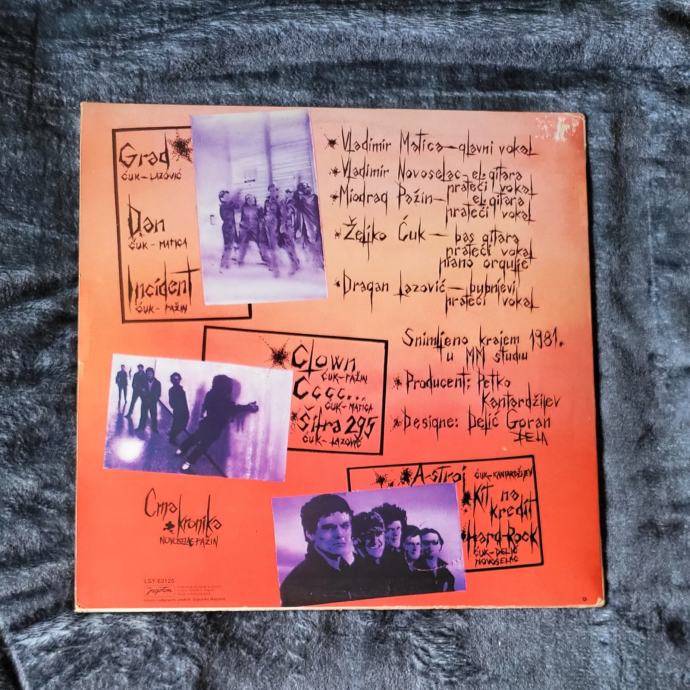 Grad
ĆUK-LAZOVIĆ
Dan
ĆUK-MATICA
Incident
ĆUK-PAŽIN
Vladimir Matica-glavni vokal
Vladimir Novoselac-el.gitara
prateći vokal
Miodrag Pažin-el.gitara
prateći vokal
Željko Ćuk-bas gitara
prateći vokal
piano orgulje
Dragan Lazović-bubnjevi
prateći vokal
Clown
ĆUK-PAŽIN
Cccc...
ĆUK-MATICA
Šifra 295
ĆUK-LAZOVIĆ
Snimljeno krajem 1981.
u MM studiu
Producent: Petko
Kantardžijev
Designe: Delić Goran
Crna kronika
NOVOSELAC-PAŽIN
A-stroj ĆUK-KANTARDŽIJEV
Kit na
kredit
Hard-Rock
ĆUK-DELIĆ
NOVOSELAC
LSY-63125
jugoton